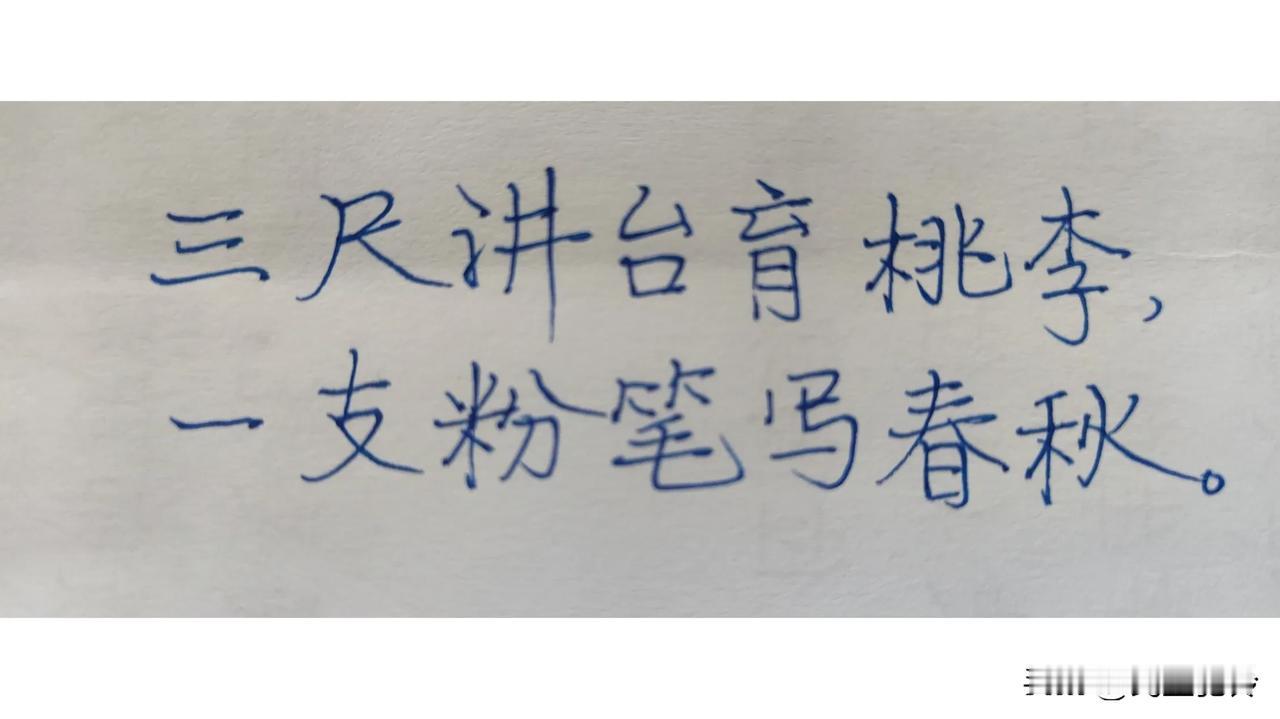 三尺讲台育桃李，
一支粉笔写春秋。